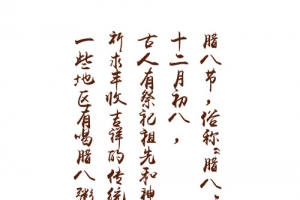 腊八节，俗称“腊八，
十二月初八，
古人有祭祀祖先和神
祈求丰收吉祥的传统
一些地区有喝腊八粥